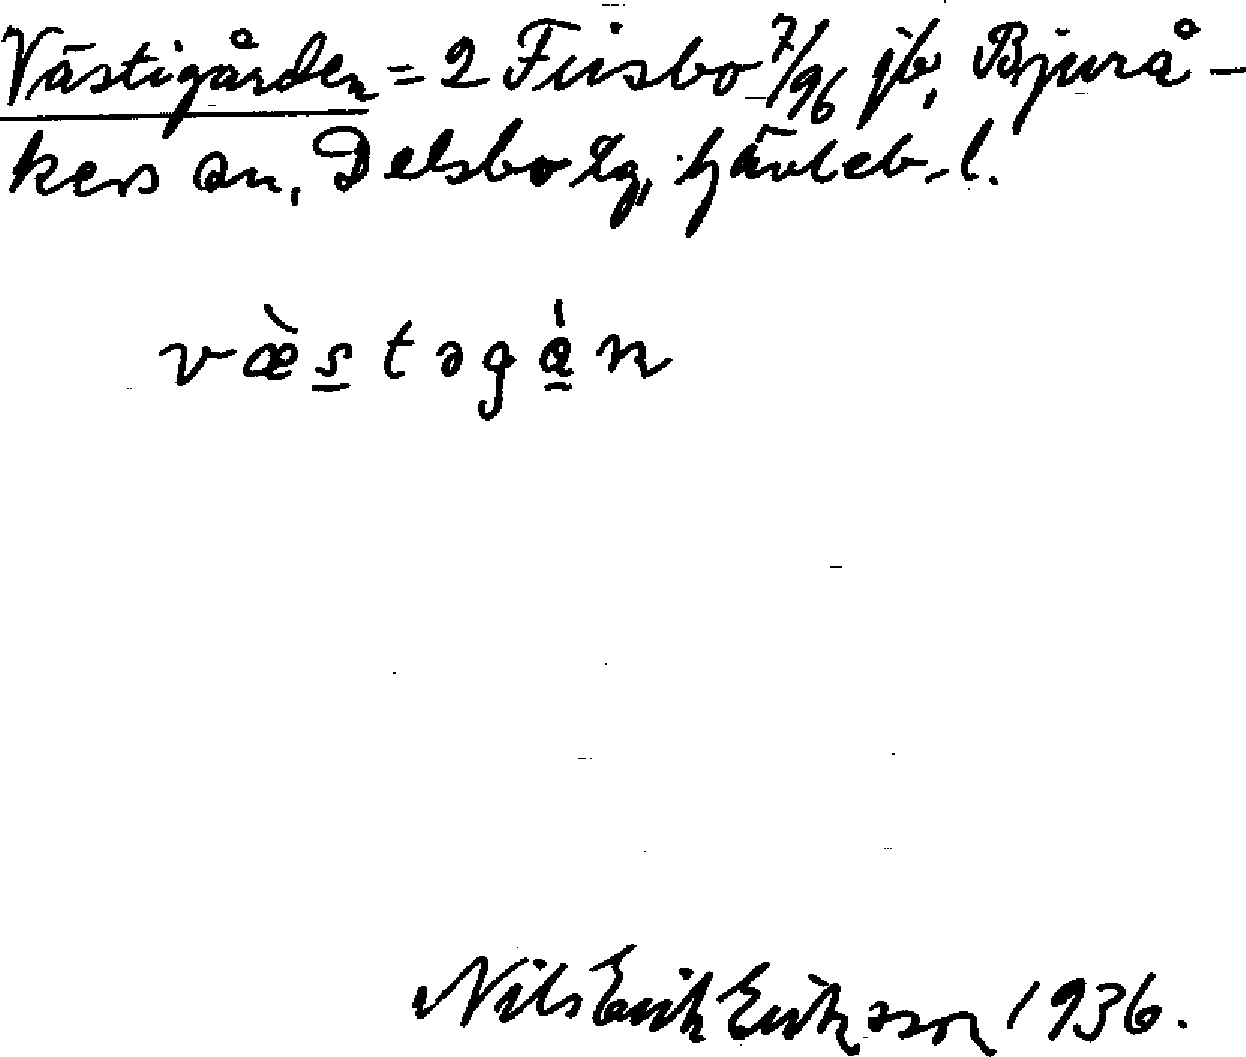 Västigården = 2 Frisbo 7/96 jb, Bjurå-
kers sn, Delsbo tg, Gävleb. l.
væ̀s̲təgǻ̲n
Nils Erik Eriksson 1936.